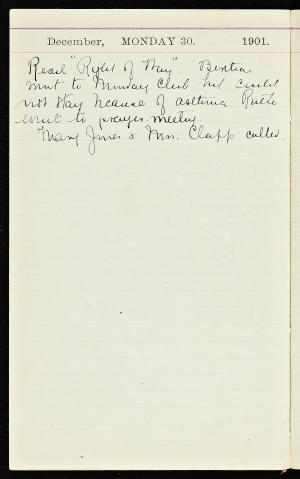 December, MONDAY 30. 1901.
Read "Right of Way". Bertha
went to Monday Club but could
not stay because of asthma Ruth
went to prayer-meeting.
Mary Jones & Mrs. Clapp called.